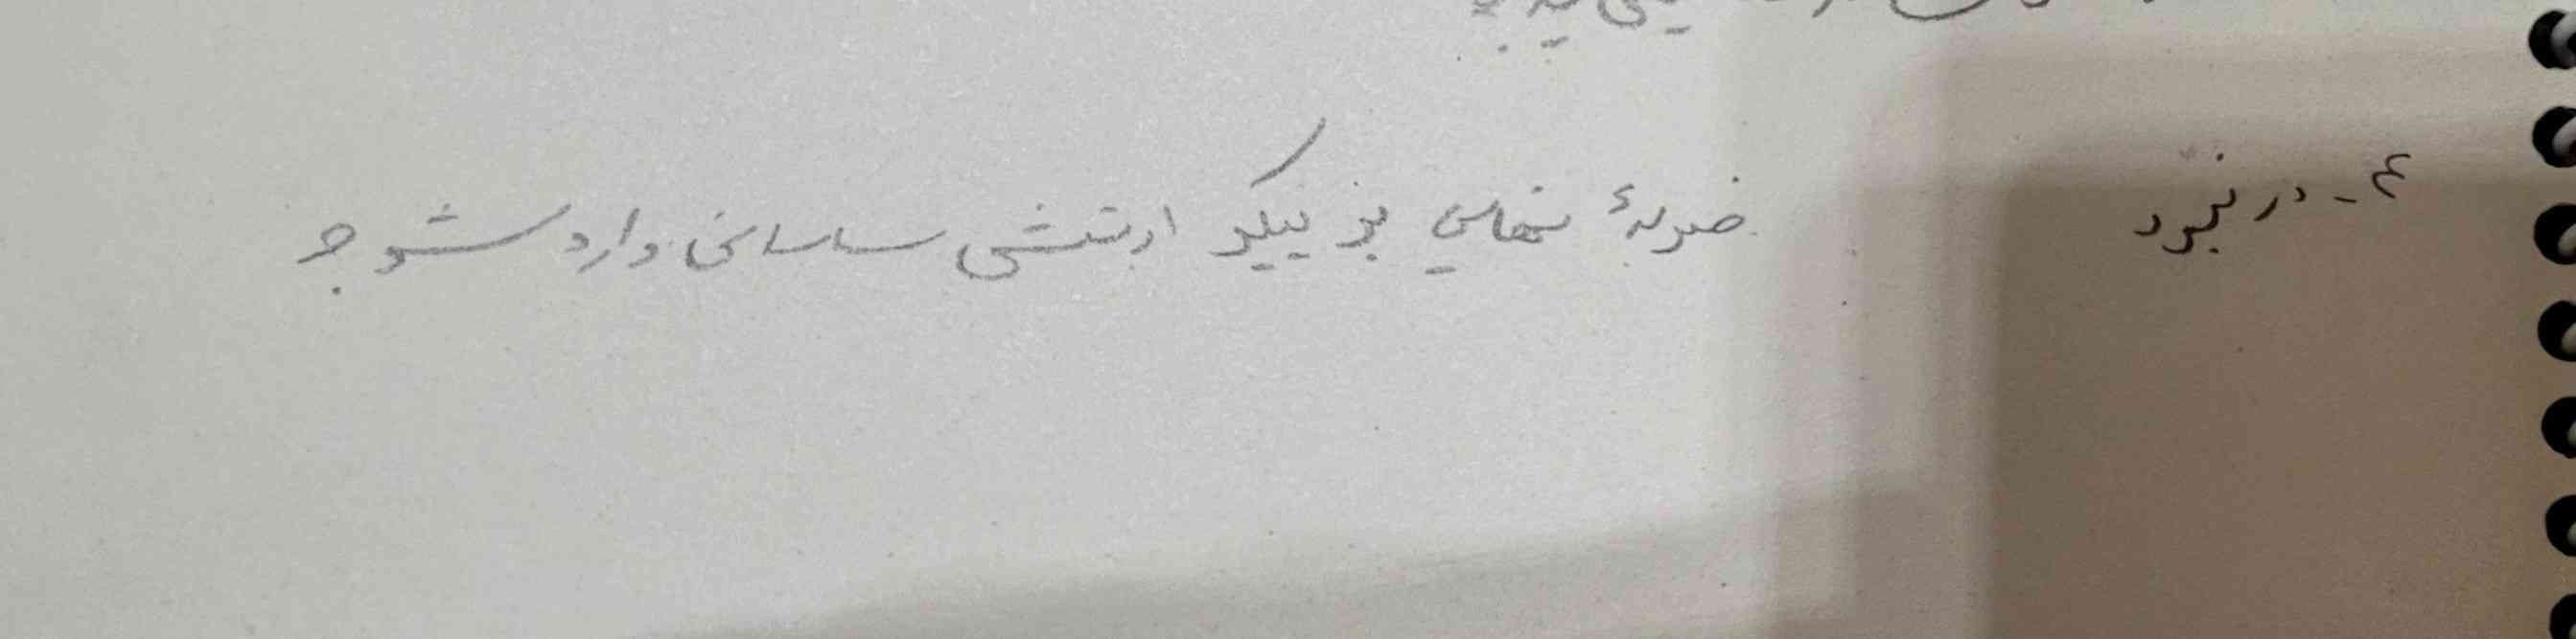 ۴- در نبرد ضربهٔ نهایی بر پیکر ارتش ساسانی وارد شد